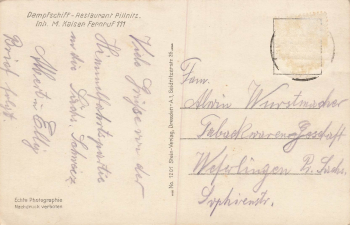 Dampfschiff-Restaurant Pillnitz.
Inh. M. Kaiser Fernruf 111
Viele Grüße von der
Himmelfahrtspartie
in die Sächs. Schweiz
Albert u. Elly
Brief folgt.
Echte Photographie
Nachdruck verboten
No. 1001 Stein-Verlag, Dresden-A.1
Fam.
Alwin Wurstmacher
Tabackwaren-Geschäft
Weferlingen Pr. Sachs.